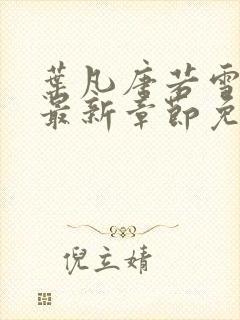 葉凡唐若雪
最新章節免
倪立婧